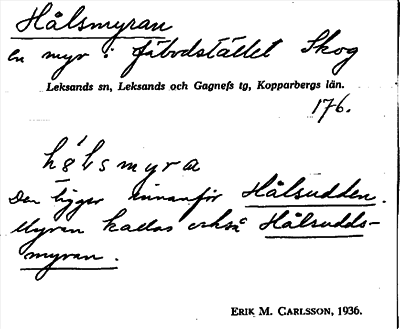 Hålsmyran
en myr i fäbodstället Skog
Leksands sn, Leksands och Gagnefs tg, Kopparbergs län.
176.
hǫ́ḷsmyra
Den ligger innanför Hålsudden.
Myran kallas också Hålsudds-
myran.
ERIK M. CARLSSON, 1936.